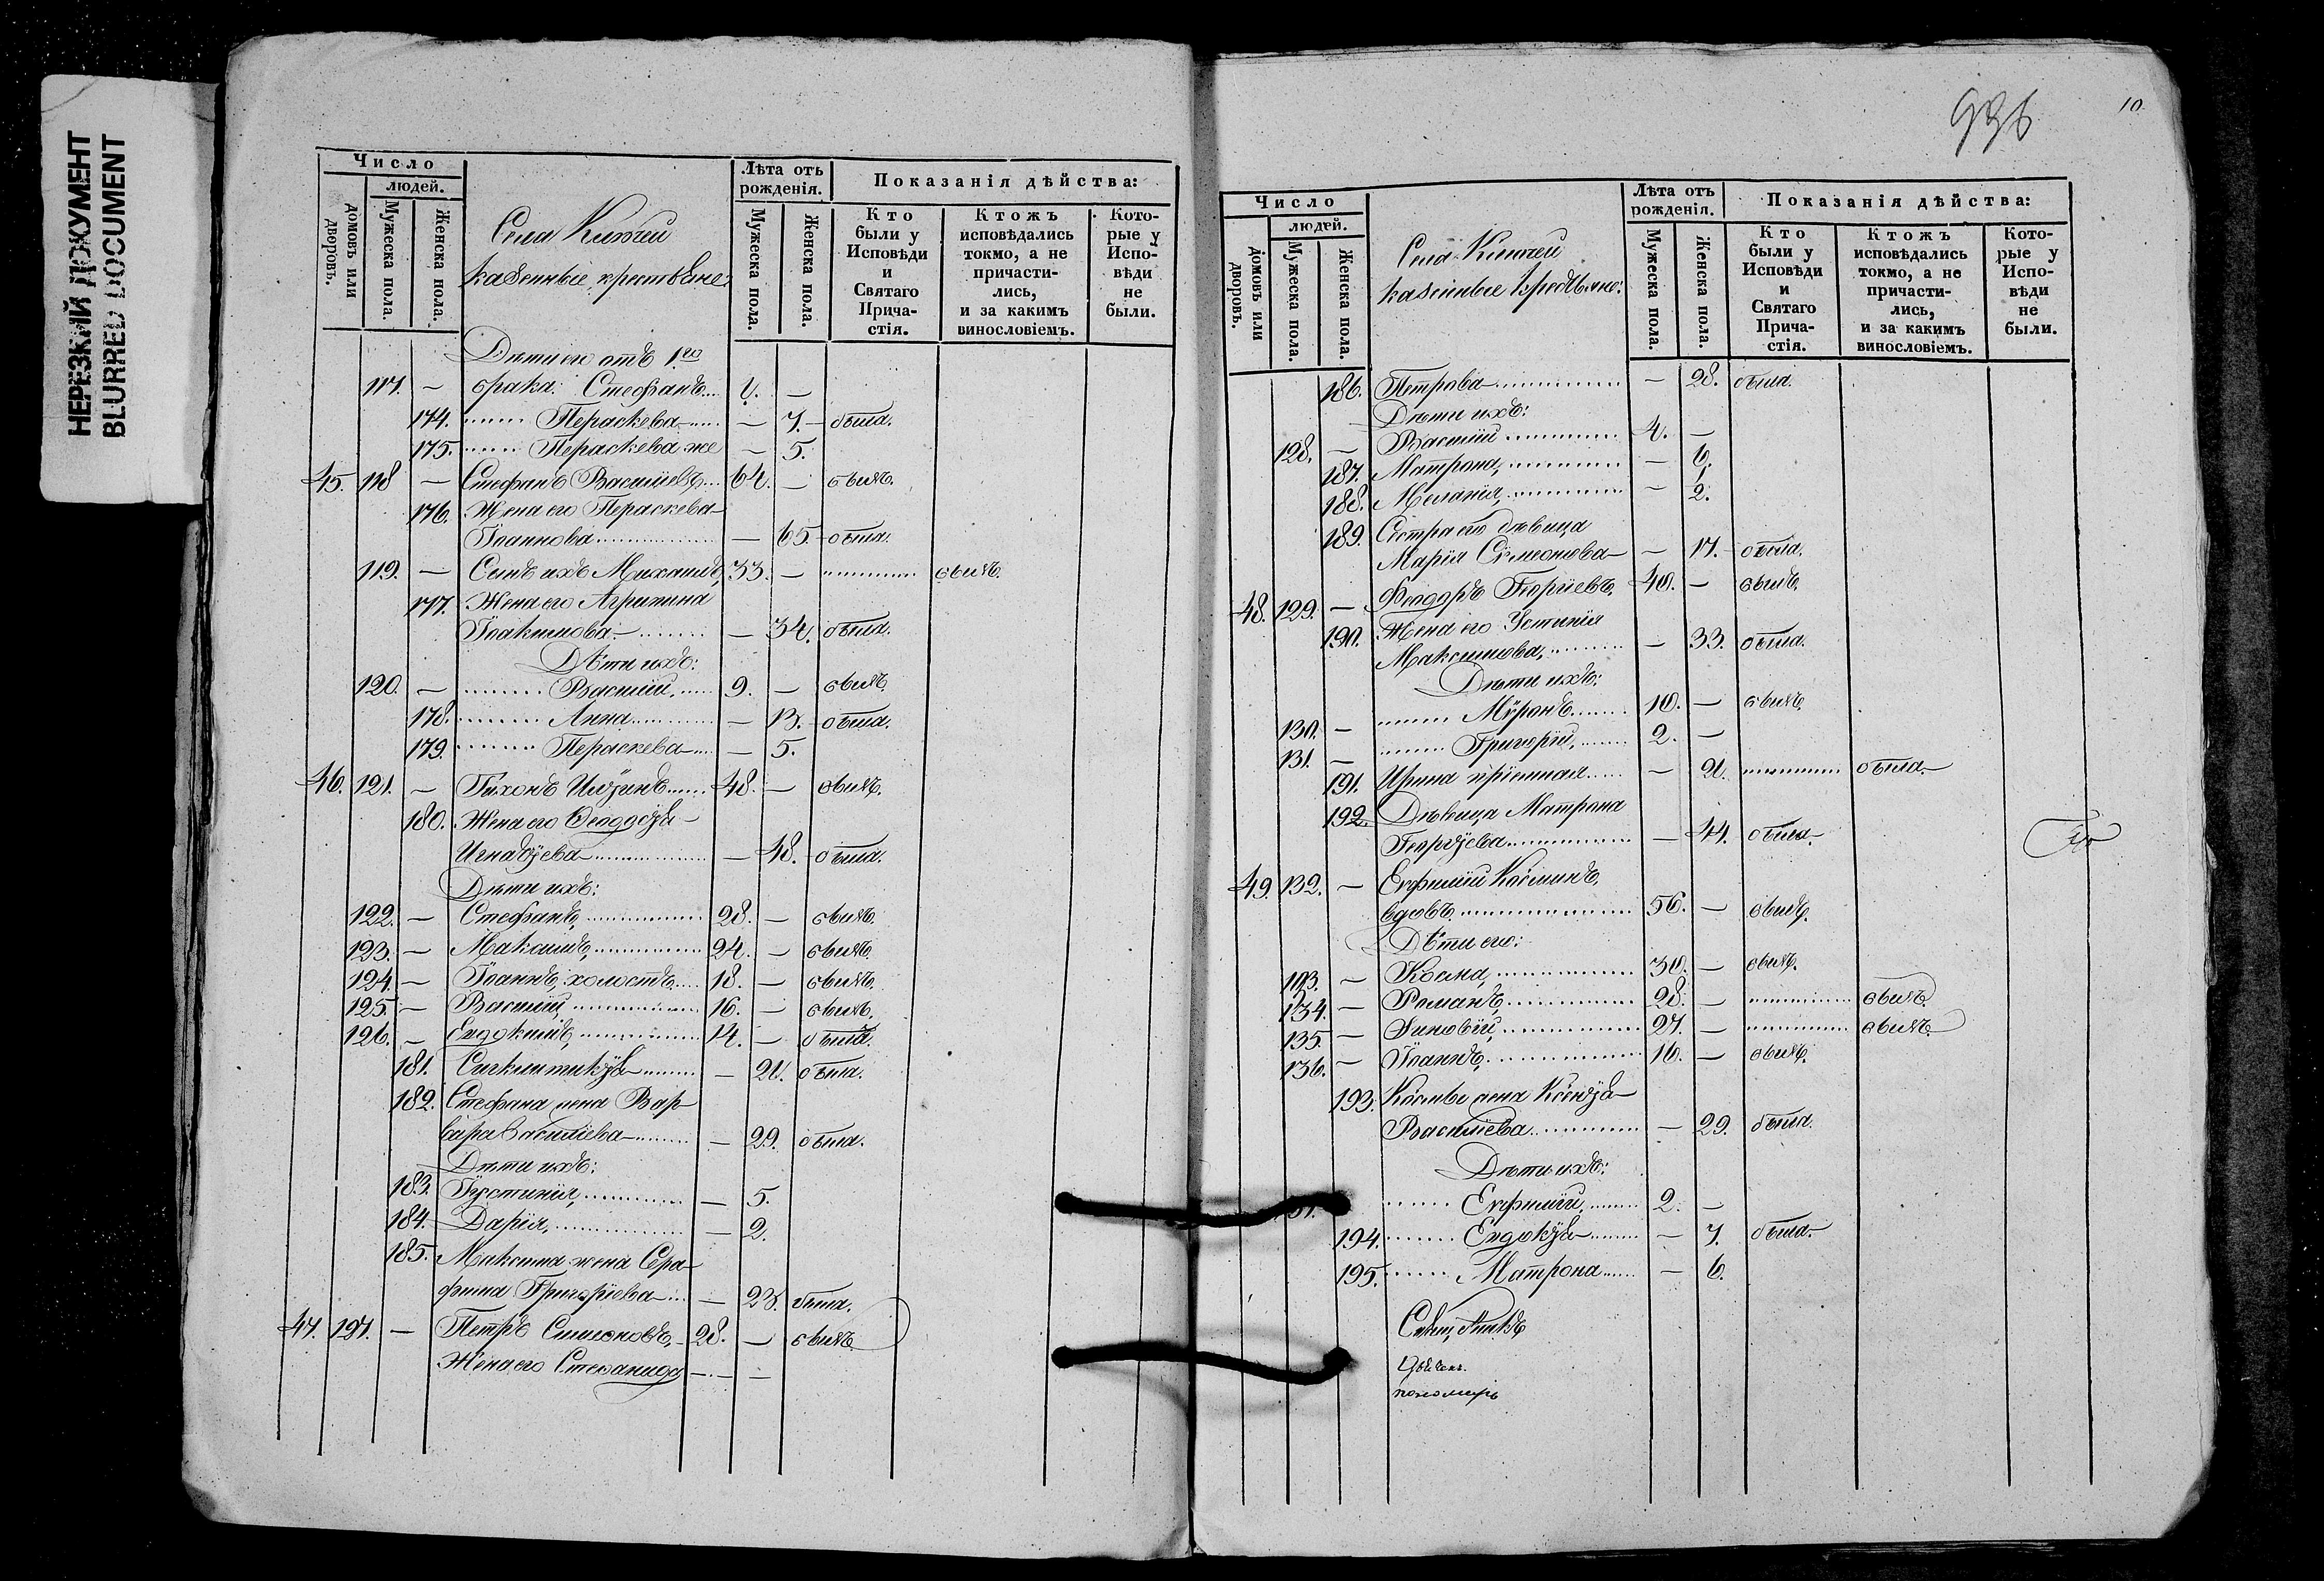 НЕРЕЗКИЙ ДОКУМЕНТ
BLURRED DOCUMENT
Число
людей.
домовъ или дворовъ.
Мужеска пола.
Женска пола.
Села
казенные крестьяне:
Лѣта отъ рожденія.
Мужеска пола.
Женска пола.
Показанія дѣйства:
Кто были у Исповѣди и Святаго Прича-стія.
Ктожъ исповѣдались токмо, а не причасти-лись, и за какимъ винословіемъ.
Кото-рые у Испо-вѣди не были.
Дѣти его отъ 1го
117. — брака: Стефанъ —
174. Параскева — 7. была.
175. Параскева же — 5.
45. 118 — Стефанъ Василіевъ 64. — былъ.
176. Жена его Параскева
Іоаннова — 65. была.
119. — Сынъ ихъ Михаилъ, 33. — былъ.
177. Жена его Агрипина
Іоакимова — 34. была.
Дѣти ихъ:
120. — Василій, 9. — былъ.
178. Анна — 13. была.
179. Параскева — 5.
46. 121. — Тихонъ 48. — былъ.
180. Жена его Ѳеодосія
— 48. была.
Дѣти ихъ:
122. — Стефанъ, 28. — былъ.
123. — Максимъ, 24. — былъ.
124. — Іоаннъ, холостъ 18. — былъ.
125. — Василій, 16. — былъ.
126. — Евдокимъ, 14. — былъ.
181. — 21. была.
182. Стефана жена Вар-
вара Василіева — 29. была.
Дѣти ихъ:
183. Іустинія, — 5.
184. Дарія, — 2.
185. Максима жена Сера-
фима Григоріева — 23. была.
47. 127. — Петръ Симеоновъ, 28. — былъ.
Жена его Стефанида — — —
936
10
Число
людей.
домовъ или дворовъ.
Мужеска пола.
Женска пола.
Села
казенные крестьяне:
Лѣта отъ рожденія.
Мужеска пола.
Женска пола.
Показанія дѣйства:
Кто были у Исповѣди и Святаго Прича-стія.
Ктожъ исповѣдались токмо, а не причасти-лись, и за какимъ винословіемъ.
Кото-рые у Испо-вѣди не были.
186. Петрова — 28. была.
Дѣти ихъ:
128. — Василій 4. —
187. Матрона, — 6.
188. Меланія, — 2.
189. Сестра его дѣвица
Марія Симеонова — 17. была.
48. 129. — Ѳеодоръ Георгіевъ, 40. — былъ.
190. Жена его Устинія
Максимова, — 33. была.
Дѣти ихъ:
130. — Миронъ 10. — былъ.
131. — Григорій, 2. —
191. Ирина пріемная — 21. была.
192. Дѣвица Матрона
Георгіева — 44. была.
49. 132. — Евфимій Косминъ,
вдовъ 56. — былъ.
Дѣти его:
133. — Косма, 30. — былъ.
134. — Романъ, 28. — былъ.
135. — Зиновій, 27. — былъ.
136. — Іоаннъ, 16. — былъ.
193. Космы жена Ксенія
Василіева — 29. была.
Дѣти ихъ:
Евфимій, 2. —
194. Евдокія — 7. была.
195. Матрона — 6.
пономарь